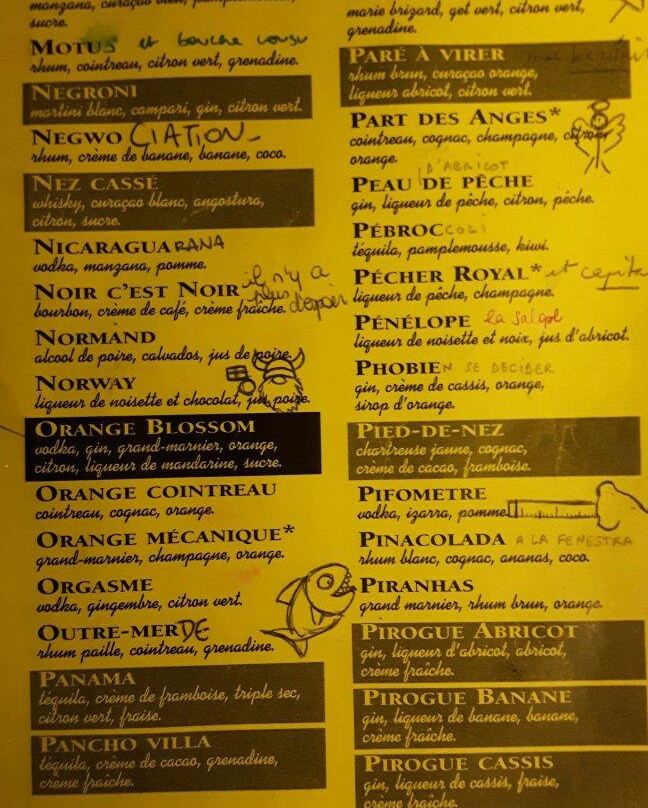 manzana, curaçao bleu, pamplemousse,
sucre.
MOTUS et bouche cousu
rhum, cointreau, citron vert, grenadine.
NEGRONI
martini blanc, campari, gin, citron vert.
NEGWO CIATION_
rhum, crème de banane, banane, coco.
NEZ CASSÉ
whisky, curaçao blanc, angostura,
citron, sucre.
NICARAGUA RANA
vodka, manzana, pomme.
NOIR C'EST NOIR il n'y a plus d'espoir
bourbon, crème de café, crème fraîche.
NORMAND
alcool de poire, calvados, jus de poire.
NORWAY
liqueur de noisette et chocolat, jus poire.
ORANGE BLOSSOM
vodka, gin, grand-marnier, orange,
citron, liqueur de mandarine, sucre.
ORANGE COINTREAU
cointreau, cognac, orange.
ORANGE MÉCANIQUE*
grand-marnier, champagne, orange.
ORGASME
vodka, gingembre, citron vert.
OUTRE-MER DE
rhum paille, cointreau, grenadine.
PANAMA
téquila, crème de framboise, triple sec,
citron vert, fraise.
PANCHO VILLA
téquila, crème de cacao, grenadine,
crème fraîche.
marie brizard, get vert, citron vert,
grenadine.
PARÉ À VIRER
rhum brun, curaçao orange,
liqueur abricot, citron vert.
PART DES ANGES*
cointreau, cognac, champagne, citron,
orange.
D'ABRICOT
PEAU DE PÊCHE
gin, liqueur de pêche, citron, pêche.
PÉBROC COLI
téquila, pamplemousse, kiwi.
PÉCHER ROYAL* et capita
liqueur de pêche, champagne.
PÉNÉLOPE la salope
liqueur de noisette et noix, jus d'abricot.
PHOBIE N SE DECIDER
gin, crème de cassis, orange,
sirop d'orange.
PIED-DE-NEZ
chartreuse jaune, cognac,
crème de cacao, framboise.
PIFOMETRE
vodka, izarra, pomme.
PINACOLADA A LA FENESTRA
rhum blanc, cognac, ananas, coco.
PIRANHAS
grand marnier, rhum brun, orange.
PIROGUE ABRICOT
gin, liqueur d'abricot, abricot,
crème fraîche.
PIROGUE BANANE
gin, liqueur de banane, banane,
crème fraîche.
PIROGUE CASSIS
gin, liqueur de cassis, fraise,
crème fraîche.